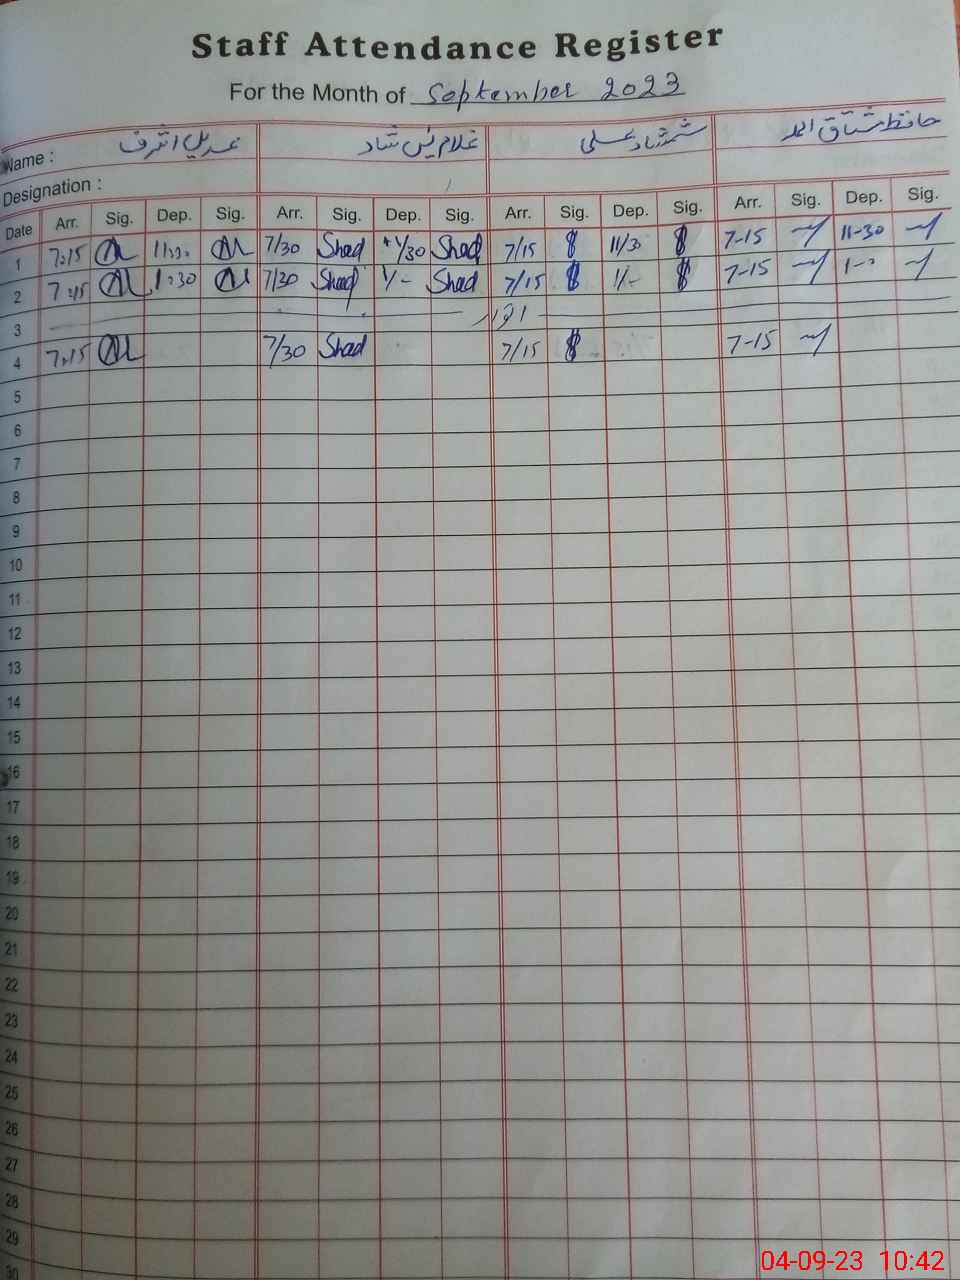 Staff Attendance Register
For the Month of September 2023
Name : عدیل اشرف غلام یٰس شاد شمشاد علی حافظ مشتاق احمد
Designation :
Date Arr. Sig. Dep. Sig. Arr. Sig. Dep. Sig. Arr. Sig. Dep. Sig. Arr. Sig. Dep. Sig.
1 7:15 11:30 7/30 Shad 1/30 Shad 7/15 11/30 7-15 11-30
2 7:15 1:30 7/30 Shad 1/- Shad 7/15 1/- 7-15 1-
3 اتوار
4 7:15 7/30 Shad 7/15 7-15
5
6
7
8
9
10
11
12
13
14
15
16
17
18
19
20
21
22
23
24
25
26
27
28
29
30
04-09-23 10:42